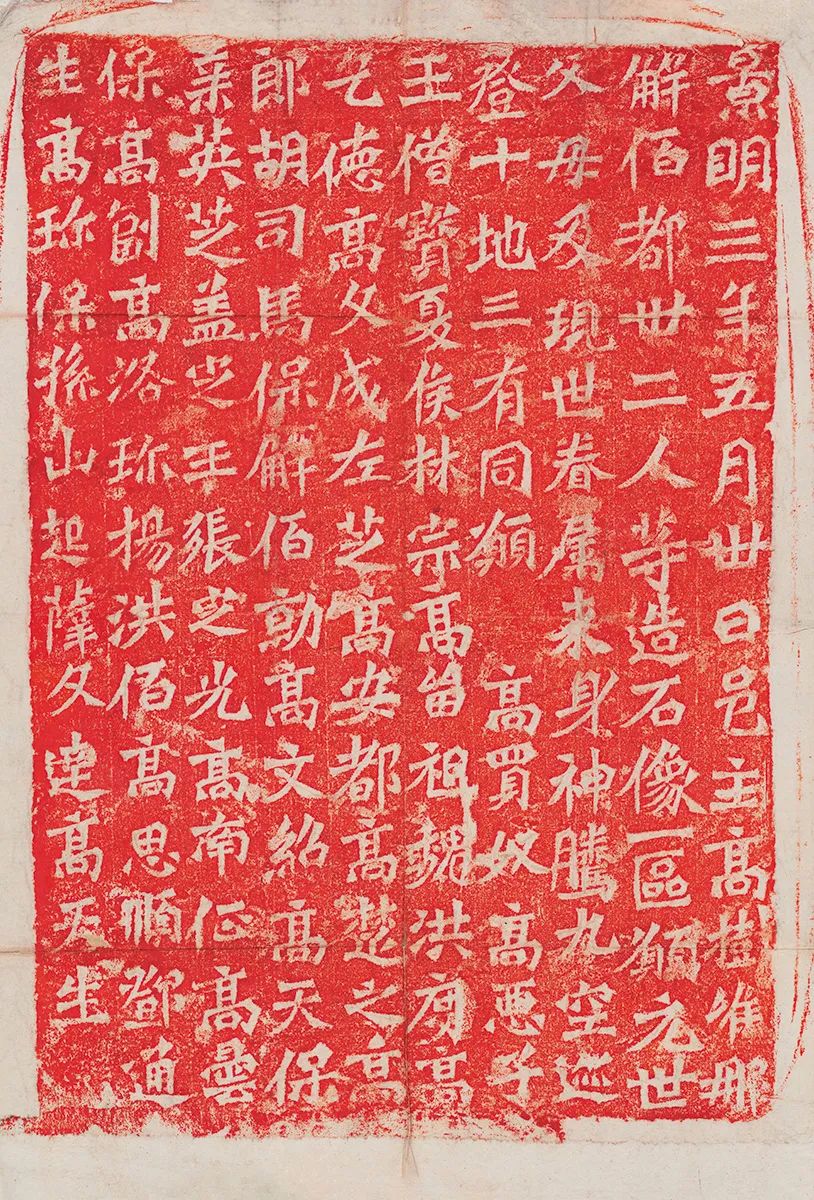 景明三年五月卅日邑主高樹唯那
解佰都卅二人等造石像一區願元世
父母及現世眷属来身神騰九空迹
登十地三有同願 高買奴 高惡子
王僧寶夏侯林宗高留祖魏洪度高
乞德高文成左芝高安都高楚之高
郎胡司馬保解佰勳高文紹高天保
英芝盖定王張定光高南征高曇
保高副高洛珎楊洪佰高思順鄧通
生高珎保孫山起薛文達高天生